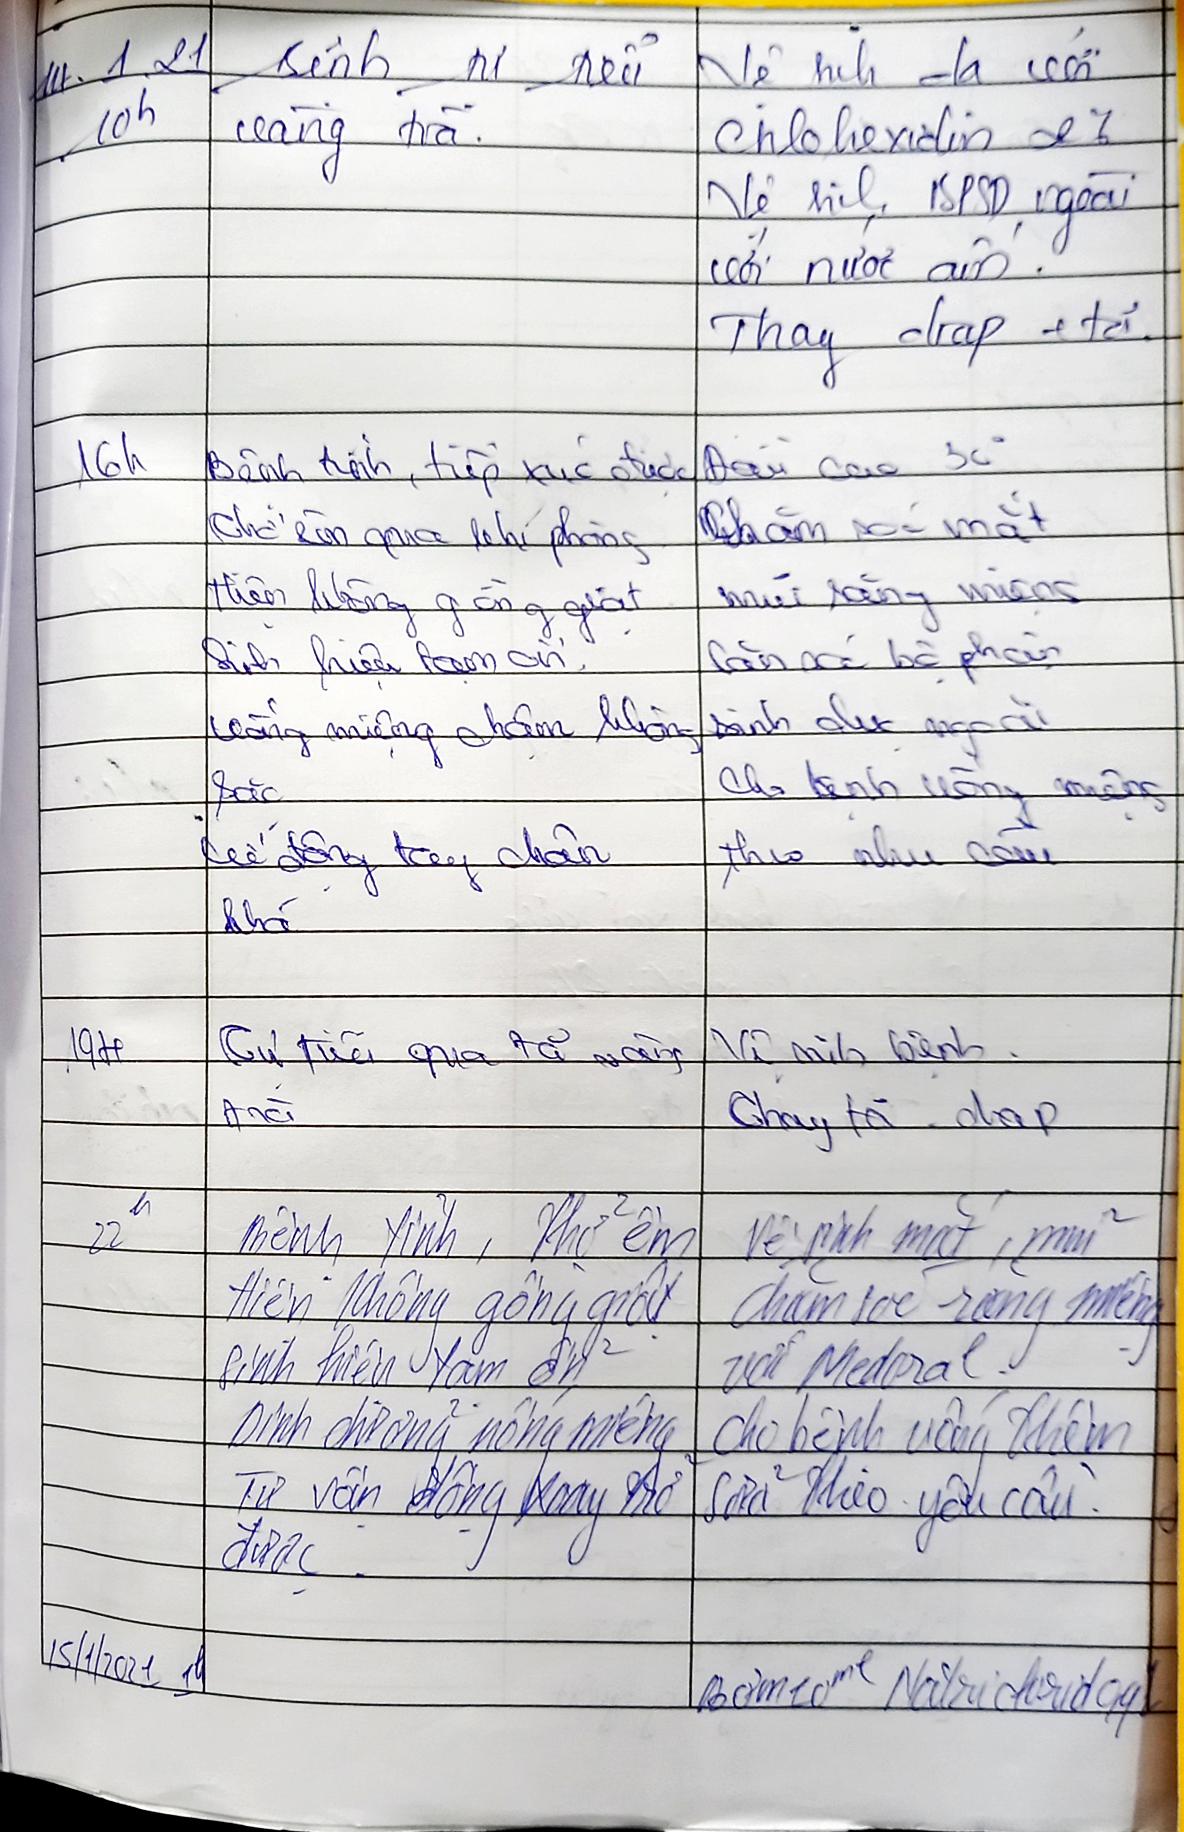 14.1.21
10h
bệnh tỉ tiểu
vàng trà.
Vệ sinh da với
Chlohexidin 2%
Vệ sinh BPSD ngoài
với nước ấm.
Thay drap + tả.
16h
Bệnh tỉnh, tiếp xúc được
thở êm qua khí phòng
Hiện không gồng giật
Sinh hiệu tạm ổn.
uống miệng chậm không
sặc
cử động tay chân
khá
Đầu cao 30°
Chăm sóc mắt
mũi răng miệng
Săn sóc bộ phận
sinh dục ngoài
Cho bệnh uống miệng
theo nhu cầu
19h
Tự tiểu qua tả vàng
trà
Vệ sinh bệnh.
Thay tả - drap
22h
Bệnh tỉnh, thở êm
Hiện không gồng giật
Sinh hiệu tạm ổn
Dinh dưỡng uống miệng
Tự vận động xoay trở
được.
Vệ sinh mắt, mũi
chăm sóc răng miệng
với Medoral.
Cho bệnh uống thêm
sữa theo yêu cầu.
15/1/2021 1h
Bơm 10ml Natriclorid 0,9%